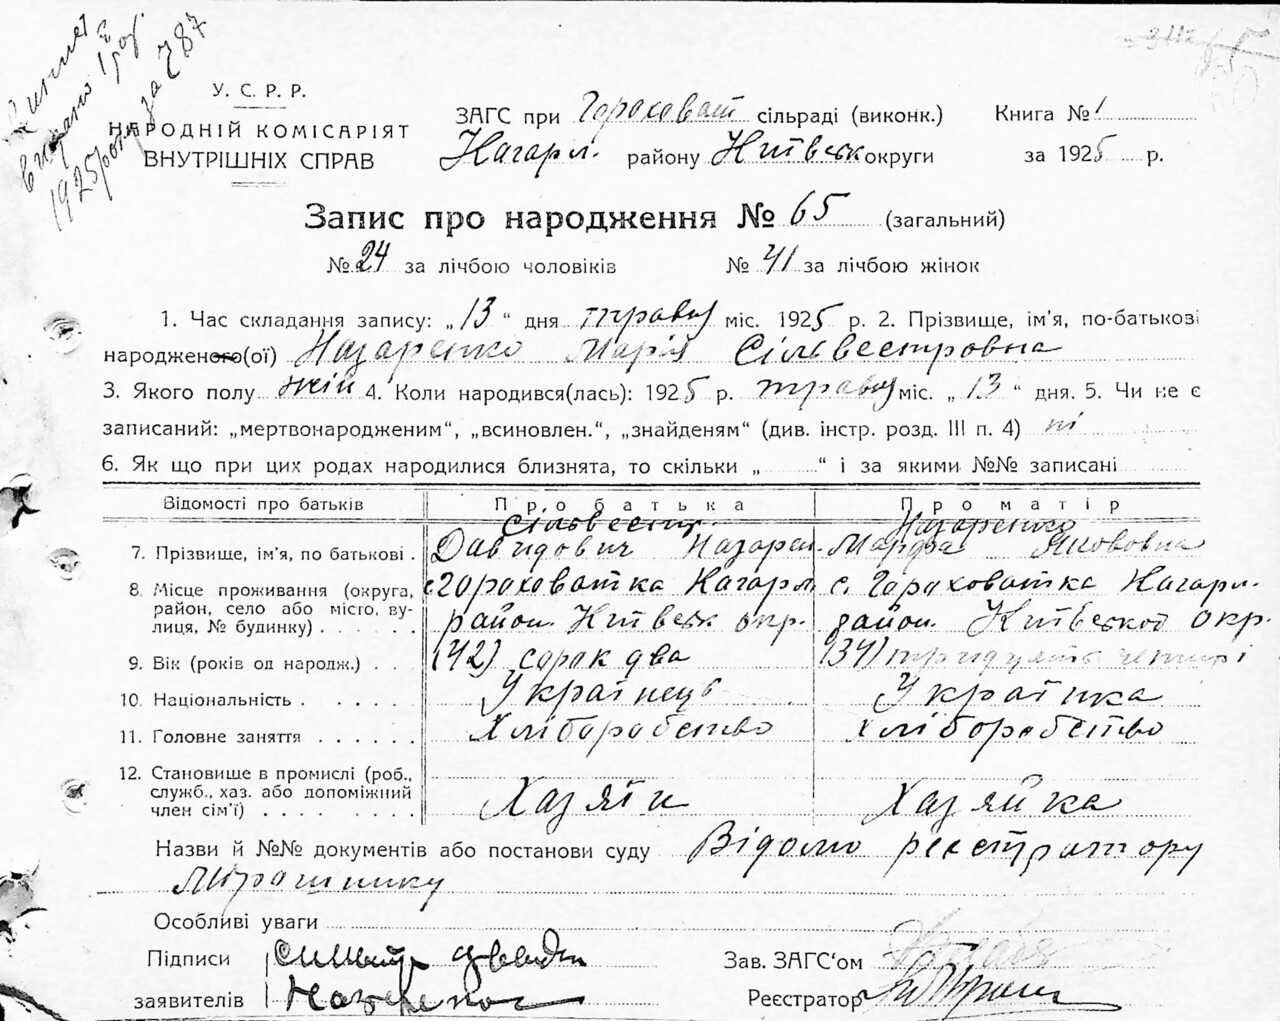 видано
1925 року за 787
У. С. Р. Р.
НАРОДНІЙ КОМІСАРІЯТ
ВНУТРІШНІХ СПРАВ
ЗАГС при Гороховат сільраді (виконк.) Книга № 1
Кагарл. району Київськ округи за 1925 р.
Запис про народження № 65 (загальний)
№ 24 за лічбою чоловіків № 41 за лічбою жінок
1. Час складання запису: „ 13 “ дня травня міс. 1925 р. 2. Прізвище, ім'я, по-батькові
народженого(ої) Назаренко Марія Сільвестровна
3. Якого полу жін 4. Коли народився(лась): 1925 р. травня міс. „ 13 “ дня. 5. Чи не є
записаний: „мертвонародженим“, „всиновлен.“, „знайденям“ (див. інстр. розд. III п. 4) ні
6. Як що при цих родах народилися близнята, то скільки „ “ і за якими №№ записані
Відомості про батьків Про батька Про матір
Сільвестр. Назаренко
7. Прізвище, ім'я, по батькові . Давидович Назарен. Марфа Якововна
8. Місце проживання (округа, с Гороховатка Кагарл с. Гороховатка Кагарл.
район, село або місто, ву- район. Київськ окр. район. Київської окр.
лиця, № будинку) . . . . . .
9. Вік (років од народж.) . . . (42) сорок два (34) тридцять чотирі
10. Національність . . . . . . Українець Українка
11. Головне заняття . . . . . . Хліборобство Хліборобство
12. Становище в промислі (роб.,
служб., хаз. або допоміжний Хазяїн Хазяйка
член сім'ї) . . . . . . . .
Назви й №№ документів або постанови суду Відомо реєстратору
Мірошнику
Особливі уваги
Підписи Зав. ЗАГС'ом
заявителів Назаренко Реєстратор